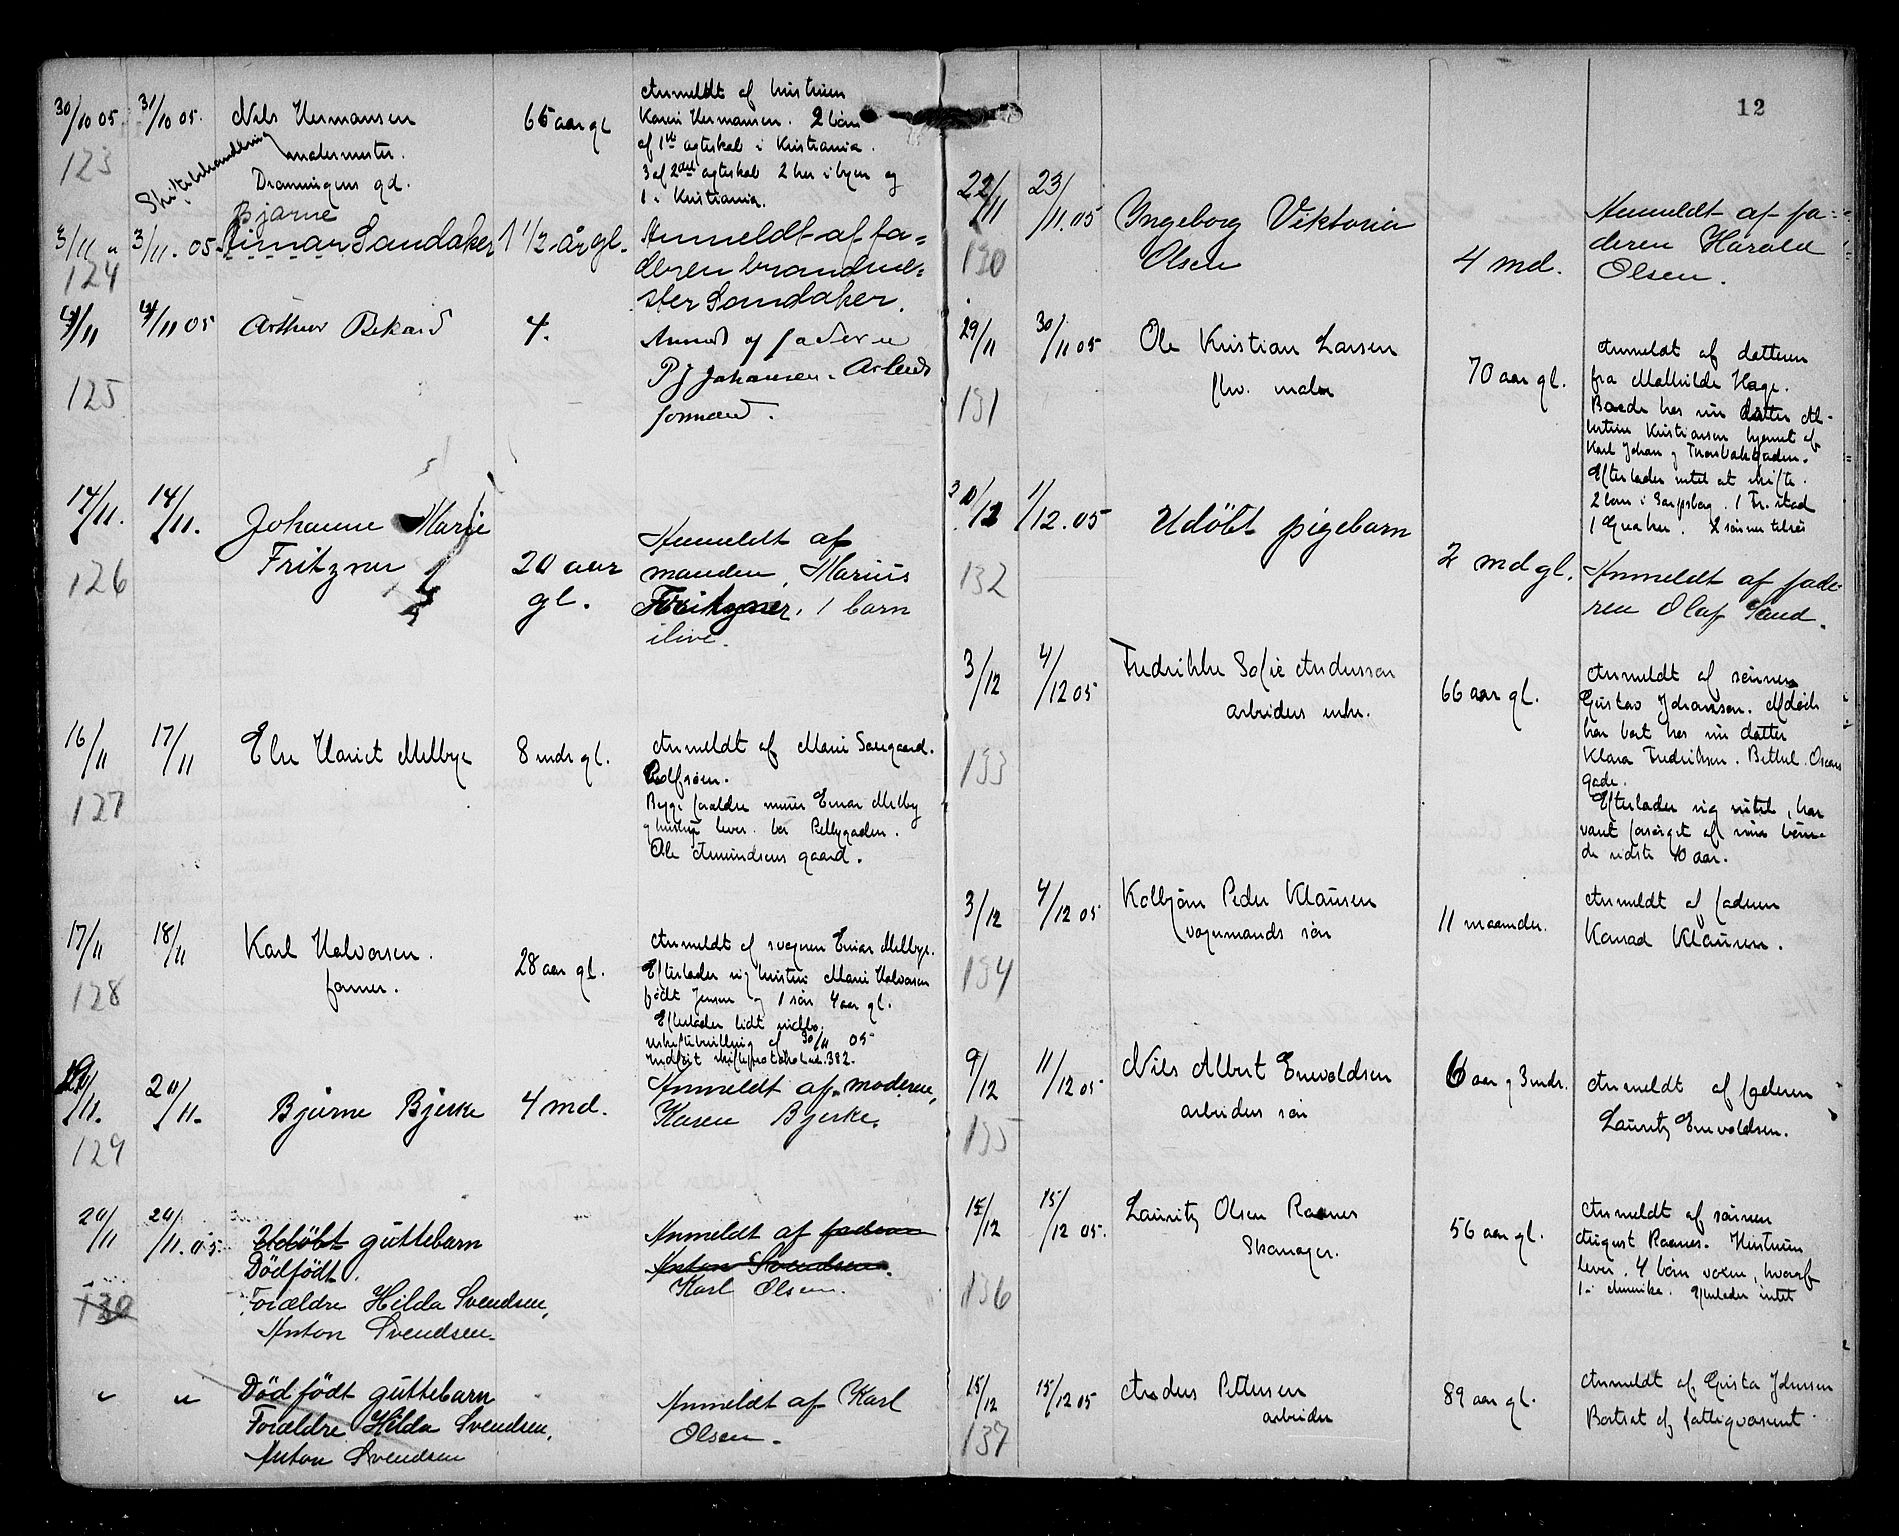 30/10 05. 31/10 05. Nils Hermansen 65 aar gl Anmeldt af hustruen
Karen Hermansen. 2 børn
af 1ste ægteskab i Kristiania.
123 Skiftebehandling malermester. 3 af 2det ægteskab 2 her i byen og
Dronningens gd. 1 i Kristiania.
Bjarne
3/11 " 3/11. 05. Eimar Sandaker 1 1/2 år gl. Anmeldt af fa=
124 deren brandme=
ster Sandaker.
4/11 4/11 05 Arthur Rekard 4. Anmeldt af faderen
P J Johansen. Arbeids
125 formand.
14/11. 14/11. Johanne Marie
Fritzner 20 aar gl. Anmeldt af
126 manden, Marius
Fritzner, 1 barn
ilive.
16/11 17/11 Else Hariet Melbye 8 mdr gl. Anmeldt af Marie
127 Begge forældre murer Einar Melby
og hustru lever. bor
Ole Amundsens gaard.
17/11 18/11 Karl Halvorsen. 28 aar gl. Anmeldt af svogeren Einar Melbye.
128 former. Efterlader sig hustru Marie Halvorsen
født Jensen og 1 søn 4 aar gl.
Efterlader lidt indbo.
uskiftebevilling af 30/11 05
Indført skifteprotokol ad. 382.
19/11. 20/11. Bjarne Bjerke 4 md. Anmeldt af moderen,
129 Karen Bjerke.
20/11 20/11. 05. Udöbt guttebarn Anmeldt af faderen
Dödfödt. Anton Svendsen.
130 Forældre Hilda Svendsen, Karl Olsen.
Anton Svendsen.
" " Död födt guttebarn Anmeldt af Karl
Forældre Hilda Svendsen, Olsen.
Anton Svendsen
12
22/11 23/11. 05 Ingeborg Viktoria Anmeldt af fa=
130 Olsen 4 md. deren Harald
Olsen.
29/11 30/11 05 Ole Kristian Larsen 70 aar gl. Anmeldt af datteren
131 fhv. maler fra Mathilde Hage.
Boede hos sin datter Al-
bertine Kristiansen hjørnet af
Karl Johan og
Efterlader intet at skifte.
2 børn i Sarpsborg. 1 Fr.stad
1 her. 2 sønner tilsøs
1/12. 05 Udöbt pigebarn 2 md gl. Anmeldt af fade-
132 ren Olaf
3/12 4/12 05 Fredrikke Sofie Andersson 66 aar gl. Anmeldt af sønnen
arbeiders enke. Gustav Johansen. Afdøde
133 har boet hos sin datter
Klara Fredriksen. Bethel. Oscars
gade.
Efterlader sig intet, har
vært forsørget af sine børn
de sidste 10 aar.
3/12 4/12 05 Kolbjørn Peder Klausen 11 maaneder. Anmeldt af faderen
134 vognmands søn Konrad Klausen.
9/12 11/12 05. Nils Albert Enevoldsen 6 aar og 3 mdr. Anmeldt af faderen
135 arbeiders søn Lauritz Enevoldsen.
15/12 15/12 05. Lauritz Olsen Raanes 56 aar gl. Anmeldt af sønnen
136 Skomager. August Raanes. Hustruen
lever. 4 børn voxne, hvoraf
1 i Amerika. Efterlader intet
15/12 15/12 05 Anders Pettersen 89 aar gl. Anmeldt af Gusta Johnsen
137 arbeider Bortsat af fattigvæsenet